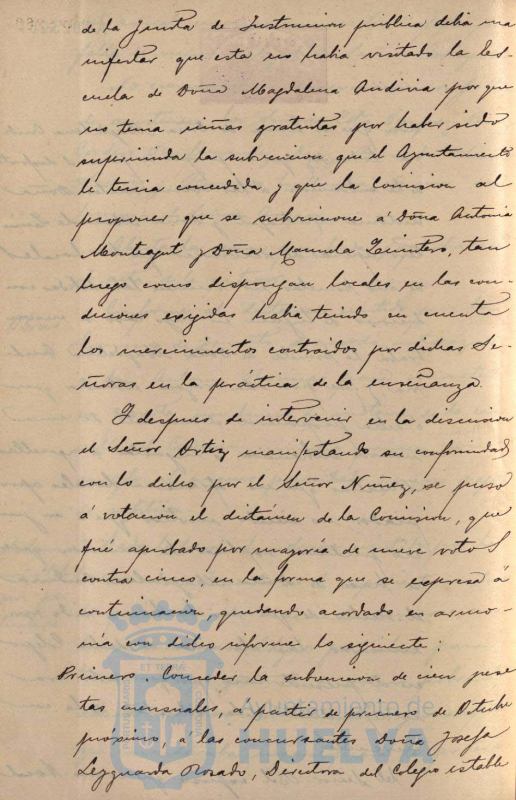 de la Junta de Instruccion pública debia ma
nifestar que esta no habia visitado la Es-
cuela de Doña Magdalena Andivia por que
no tenia niñas gratuitas por haber sido
suprimida la subvencion que el Ayuntamiento
le tenia concedida y que la Comision al
proponer que se subvencione á Doña Antonia
Monteagut y Doña Manuela Quintero, tan
luego como dispongan locales en las con-
diciones exigidas habia tenido en cuenta
los merecimientos contraidos por dichas Se-
ñoras en la práctica de la enseñanza.
Y despues de intervenir en la discusion
el Señor Ortiz manifestando su conformidad
con lo dicho por el Señor Nuñez, se puso
á votacion el dictámen de la Comision, que
fué aprobado por mayoría de nueve votos
contra cinco, en la forma que se expresa á
continuacion, quedando acordado en armo-
nía con dicho informe lo siguiente:
Primero. Conceder la subvencion de cien pese
tas mensuales, á partir de primero de Octubre
próximo, á las concursantes Doña Josefa
Rosado, Directora del Colegio estable
Ayuntamiento de
HUELVA